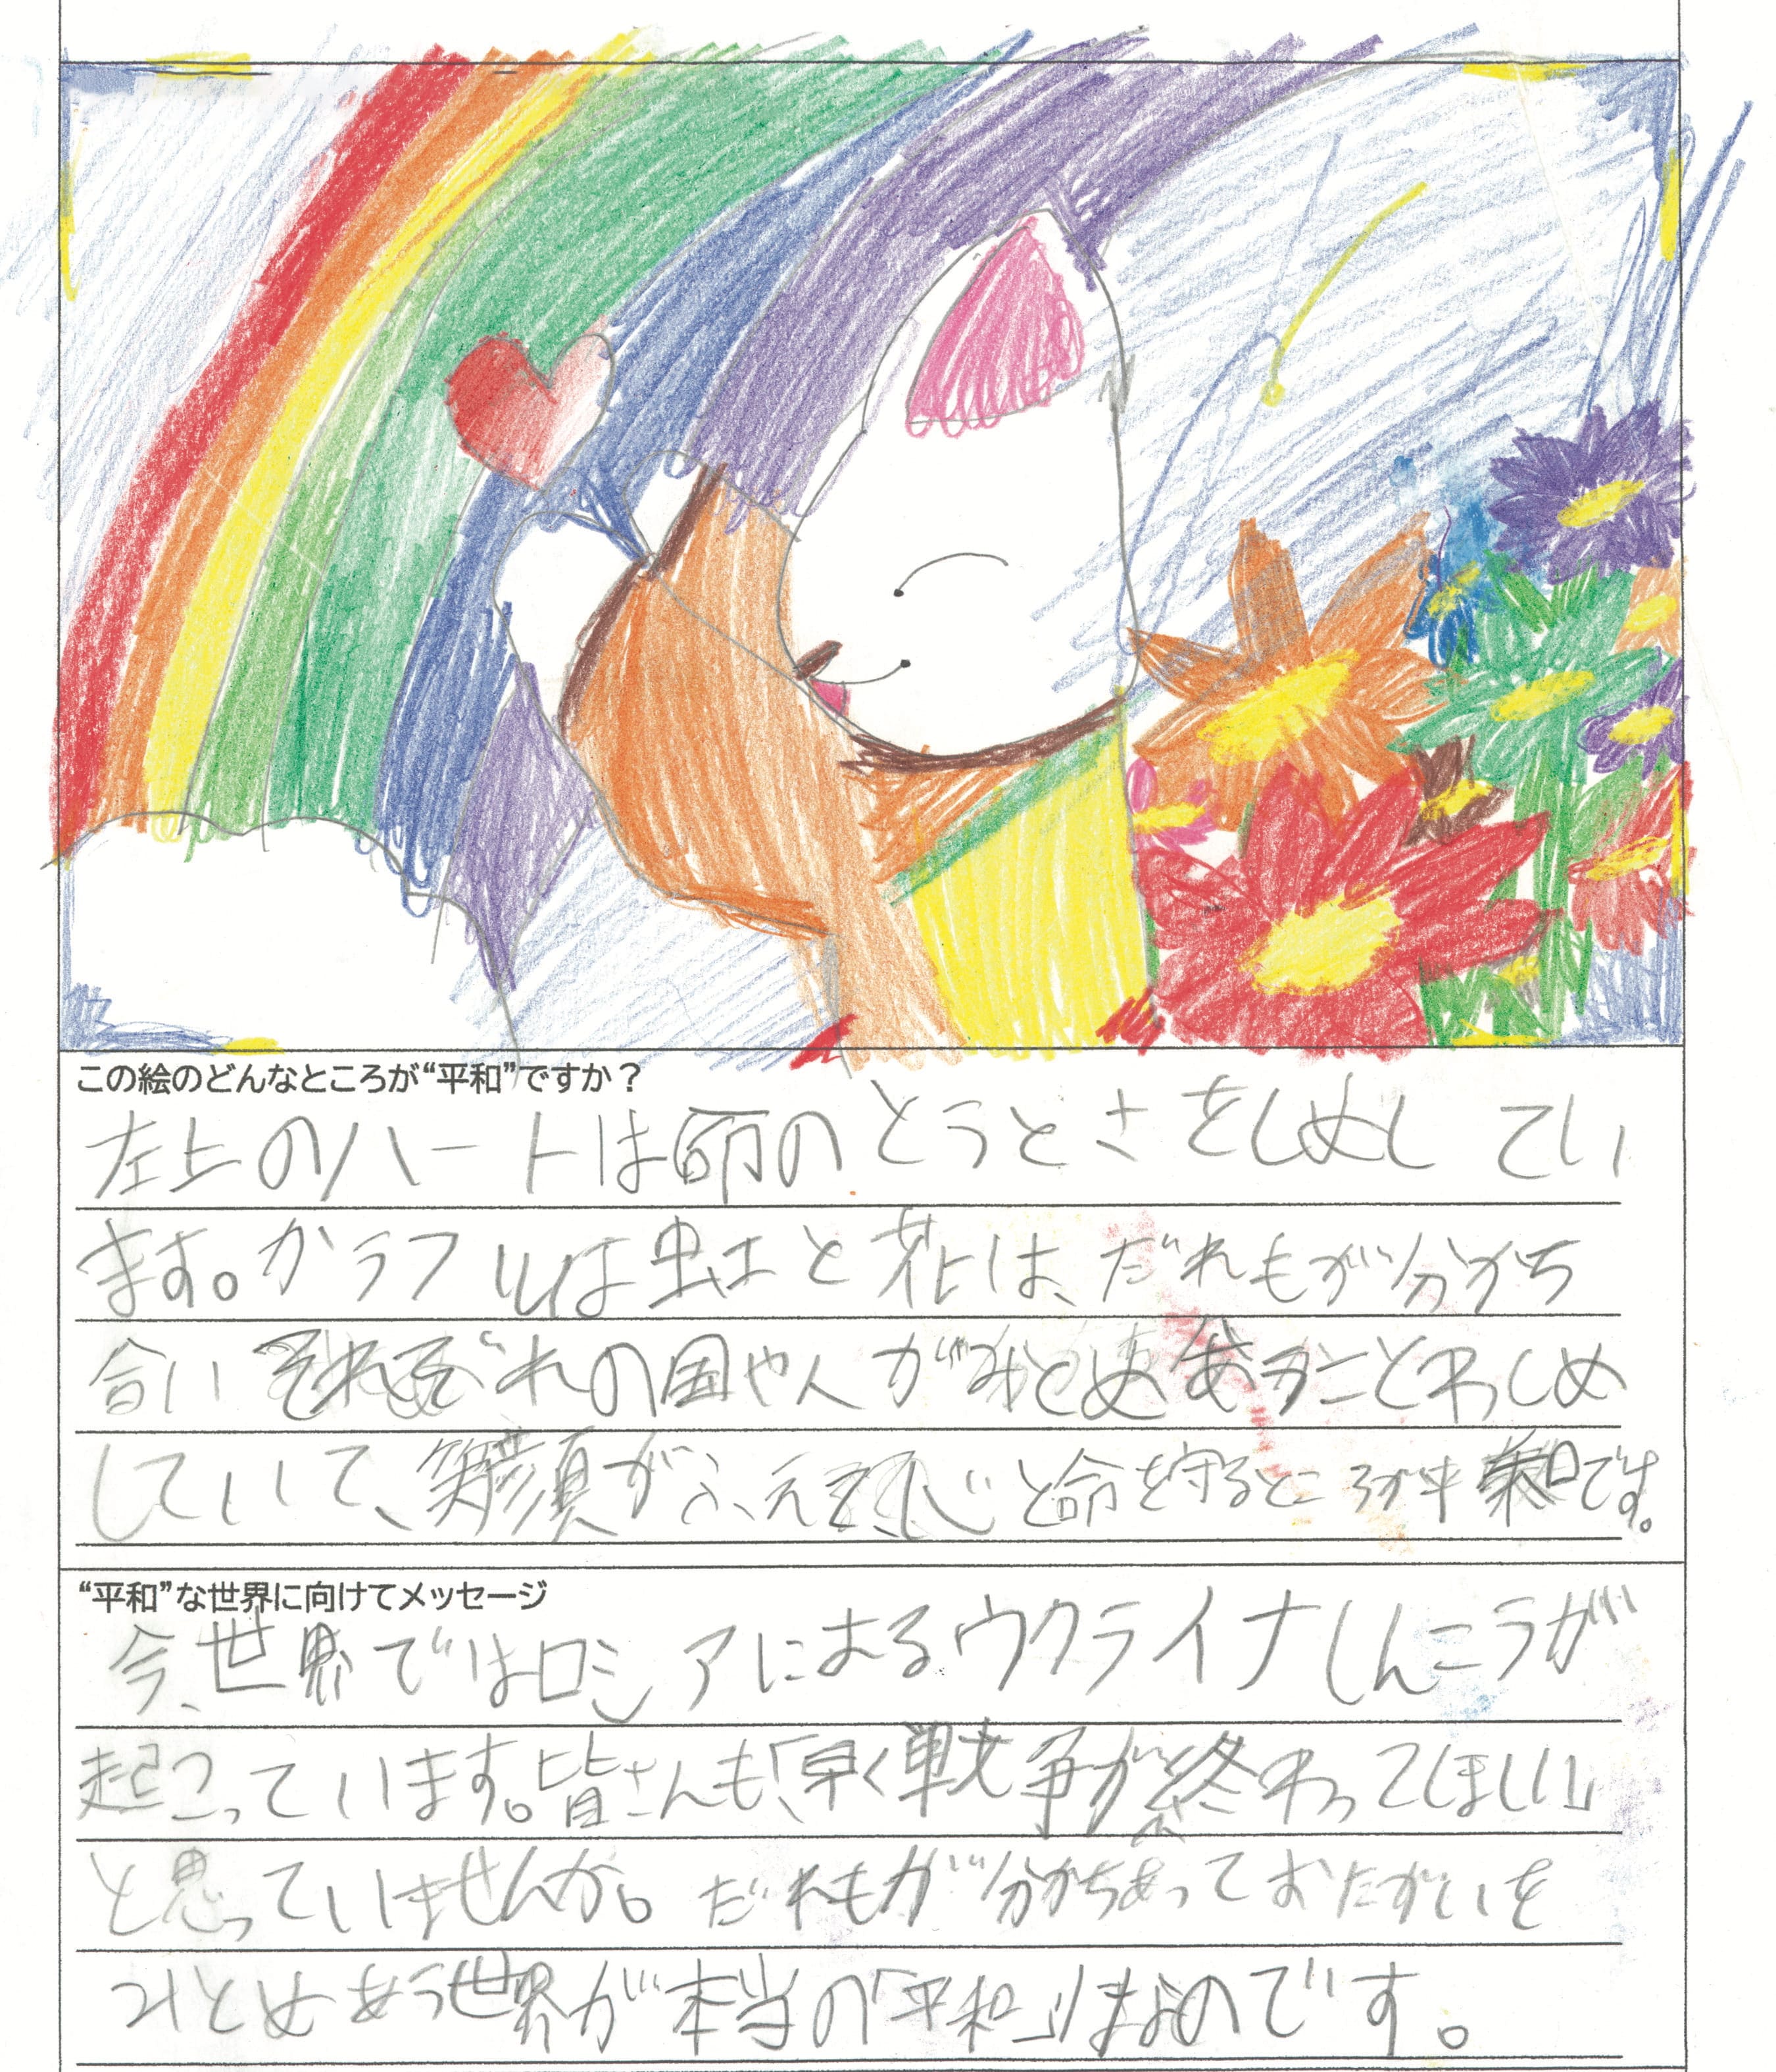 この絵のどんなところが“平和”ですか？
左上のハートは命のとうとさをしめしてい
ます。カラフルは虫はと花は、だれもが分かち
合いそれぞれの国や人がみとめあうことをしめ
していて、笑顔がふえて、心と命を守るところが平和です。
“平和”な世界に向けてメッセージ
今、世界ではロシアによるウクライナしんこうが
起こっています。皆さんも「早く戦争が終わってほしい」
と思っていませんか。だれもが分かちあっておたがいを
みとめあう世界が本当の「平和」なのです。